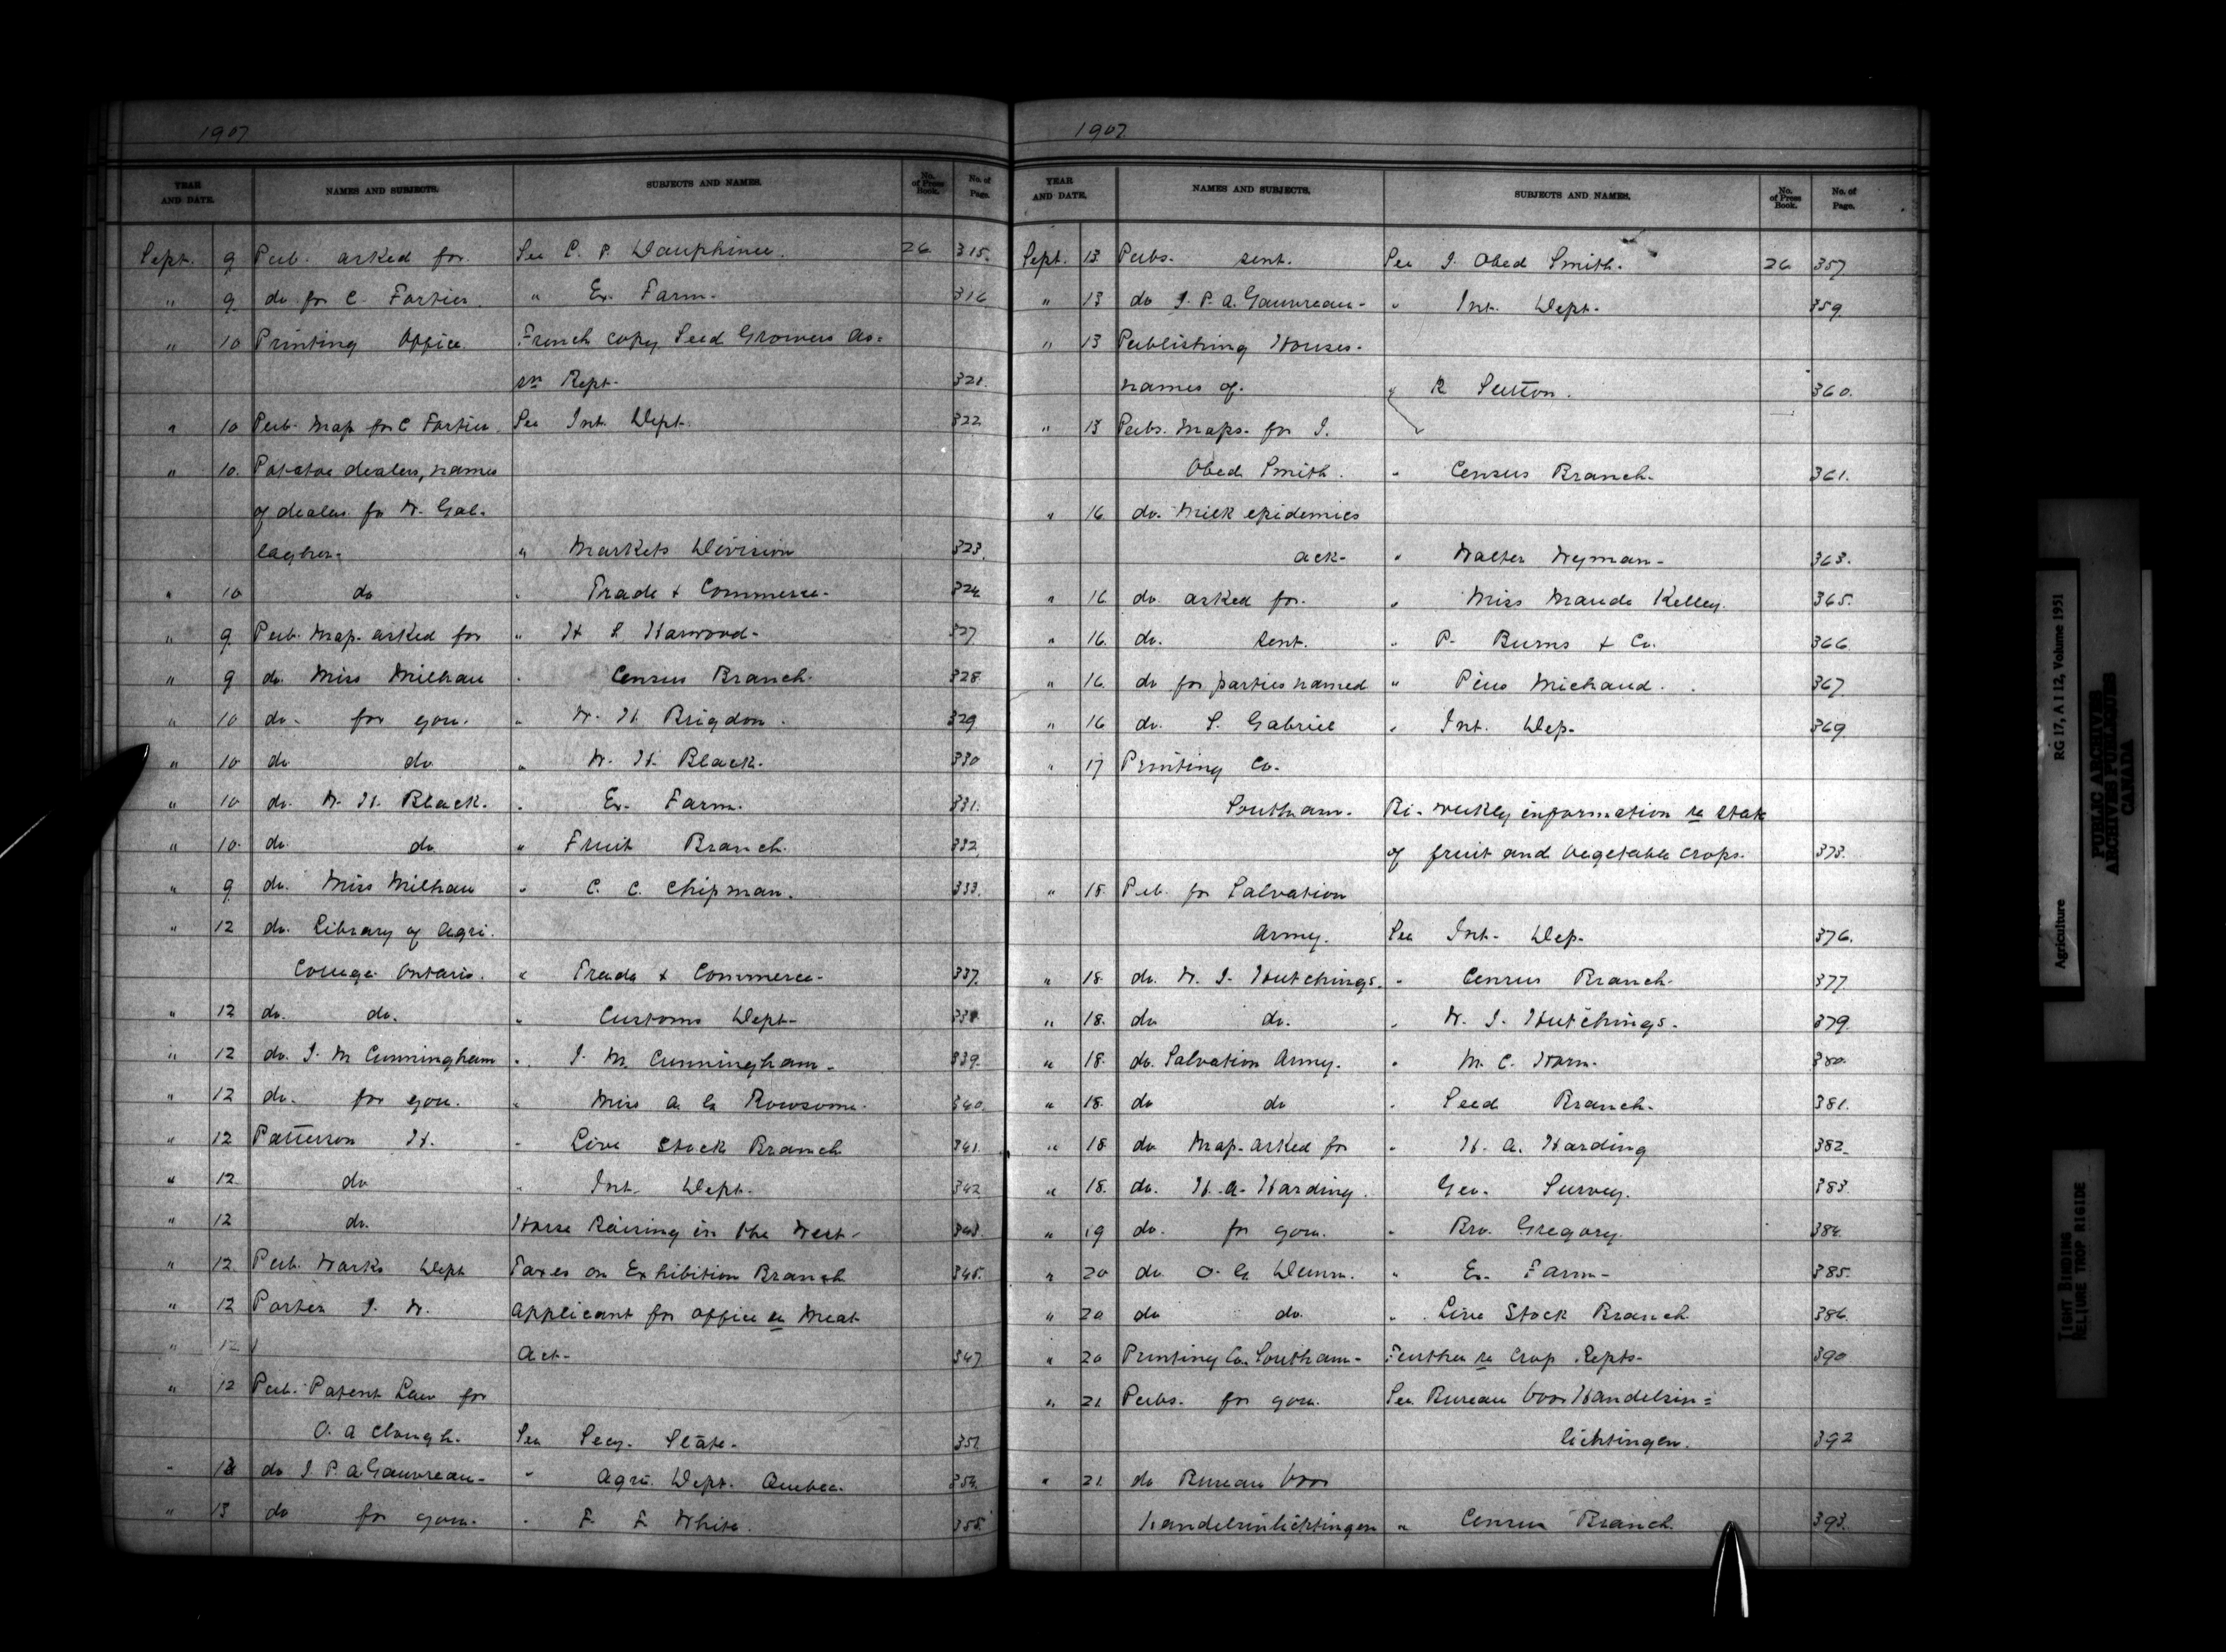 1907
YEAR AND DATE. NAMES AND SUBJECTS. SUBJECTS AND NAMES. No. of Press Book. No. of Page.
Sept. 9 Pub. asked for. See C. P. Dauphinee. 26 315.
" 9 do for C. Fortier. " Ex. Farm. 316
" 10 Printing Office. French copy Seed Growers As=
sn Rept. 321.
" 10 Pub. Map for C Fortier. See Int. Dept. 322
" 10. Potatoe dealers, names
of dealers for W. Gal-
lagher. " Markets Division 323.
" 10 do " Trade & Commerce. 324
" 9 Pub. Map. asked for " H S Harwood. 327
" 9 do. Miss Milhau " Census Branch. 328
" 10 do. for gou. " W. H. Brigdon. 329
" 10 do do " W. H. Black. 330
" 10 do. W. H. Black. " Ex. Farm. 331.
" 10. do. do " Fruit Branch. 332.
" 9 do. Miss Milhau " C. C. Chipman. 333.
" 12 do. Library of Agri.
College Ontario. " Trade & Commerce. 337.
" 12 do. do. " Customs Dept. 338
" 12 do. J. M Cunningham " J. M. Cunningham. 339.
" 12 do. for gou. " Miss A. E. Rowsome. 340.
" 12 Patterson H. " Live Stock Branch 341.
" 12 do " Int. Dept. 342
" 12 do. Horse Raising in the West. 343.
" 12 Pub. Works Dept Taxes on Exhibition Branch 345.
" 12 Porter J. W. Applicant for office re Meat
" 12 Act. 347
" 12 Pub. Patent Law for
O. A Clough. See Secy. State. 351
" 13 do J. P. A. Gauvreau. " Agri. Dept. Quebec. 354.
" 13 do for gou. " F. F. White. 355.
1907.
YEAR AND DATE. NAMES AND SUBJECTS. SUBJECTS AND NAMES. No. of Press Book. No. of Page.
Sept. 13 Pubs. sent. See J. Obed Smith. 26 357
" 13 do J. P. A. Gauvreau. " Int. Dept. 359.
" 13 Publishing Houses.
names of. " R Sutton. 360.
" 13 Pubs. Maps. for J.
Obed Smith. " Census Branch. 361.
" 16 do. Milk epidemics
ack. " Walter Wyman. 363.
" 16 do. asked for. " Miss Maude Kelley. 365.
" 16 do. sent. " P. Burns & Co. 366
" 16. do for parties named " Pius Michaud. 367
" 16 do. S. Gabriel " Int. Dep. 369
" 17 Printing Co.
Southam. Bi-weekly information re state
of fruit and vegetable crops. 373.
" 18 Pub. for Salvation
Army. See Int. Dep. 376.
" 18 do. W. J. Hutchings. " Census Branch. 377
" 18. do do. " W. J. Hutchings. 379
" 18. do. Salvation Army. " M. C. Horn. 380.
" 18. do do " Seed Branch. 381.
" 18 do Map. asked for " H. A. Harding 382.
" 18. do. H. A. Harding. Geo. Survey. 383.
" 19 do. for gou. " Bro. Gregory. 384.
" 20 do O. G. " Ex. Farm. 385.
" 20 do do. " Live Stock Branch. 386.
" 20 Printing Co. Southam. Further re Crop Repts. 390
" 21 Pubs. for gou. See Bureau voor Handelsin=
lichtingen. 392
" 21. do Bureau voor
handelsinlichtingen " Census Branch. 393.
Agriculture RG 17, A I 12, Volume 1951
PUBLIC ARCHIVES
ARCHIVES PUBLIQUES
CANADA
TIGHT BINDING
RELIURE TROP RIGIDE